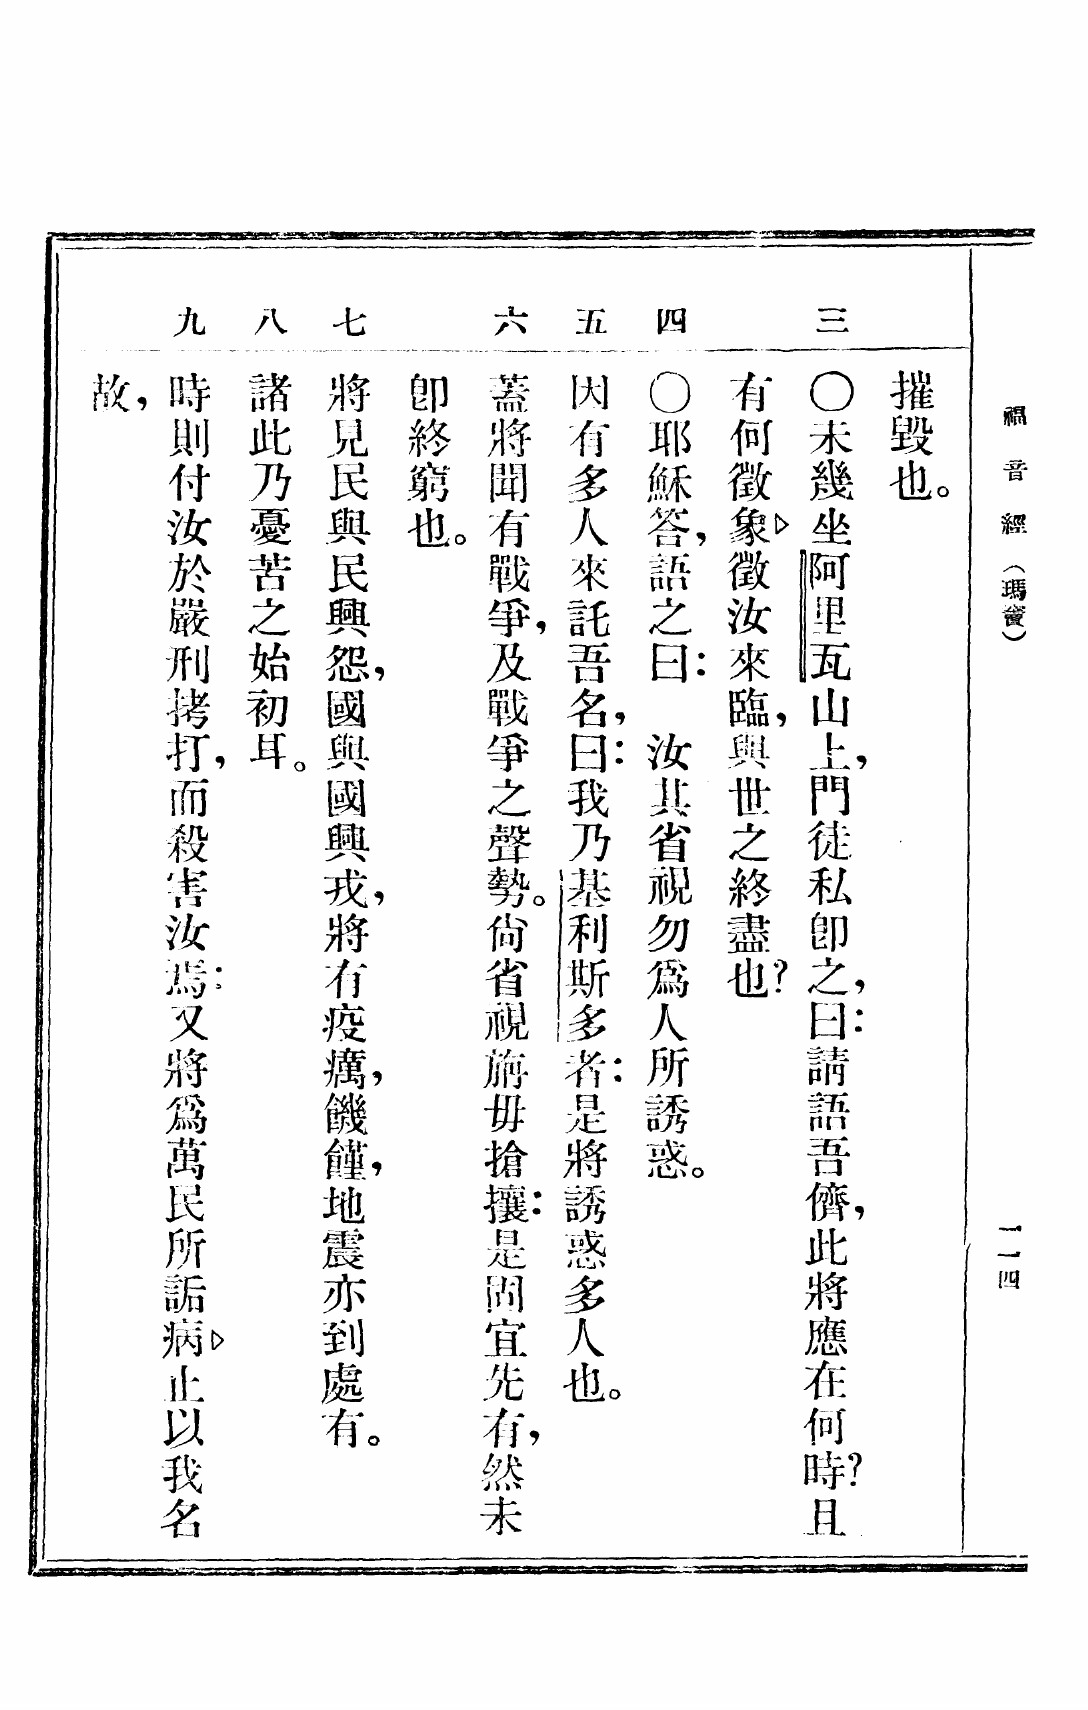 福音經（瑪竇）
一一四
摧毀也。
三
〇未幾坐阿里瓦山上，門徒私卽之，曰：請語吾儕，此將應在何時？且
有何徵象▷徵汝來臨，與世之終盡也？
四
〇耶穌答，語之曰：　汝其省視勿爲人所誘惑。
五
因有多人來託吾名，曰：我乃基利斯多者：是將誘惑多人也。
六
蓋將聞有戰爭，及戰爭之聲勢。尙省視旃毋搶攘：是固宜先有，然未
卽終窮也。
七
將見民與民興怨，國與國興戎，將有疫癘，饑饉，地震亦到處有。
八
諸此乃憂苦之始初耳。
九
時則付汝於嚴刑拷打，而殺害汝焉：又將爲萬民所詬病▷止以我名
故，